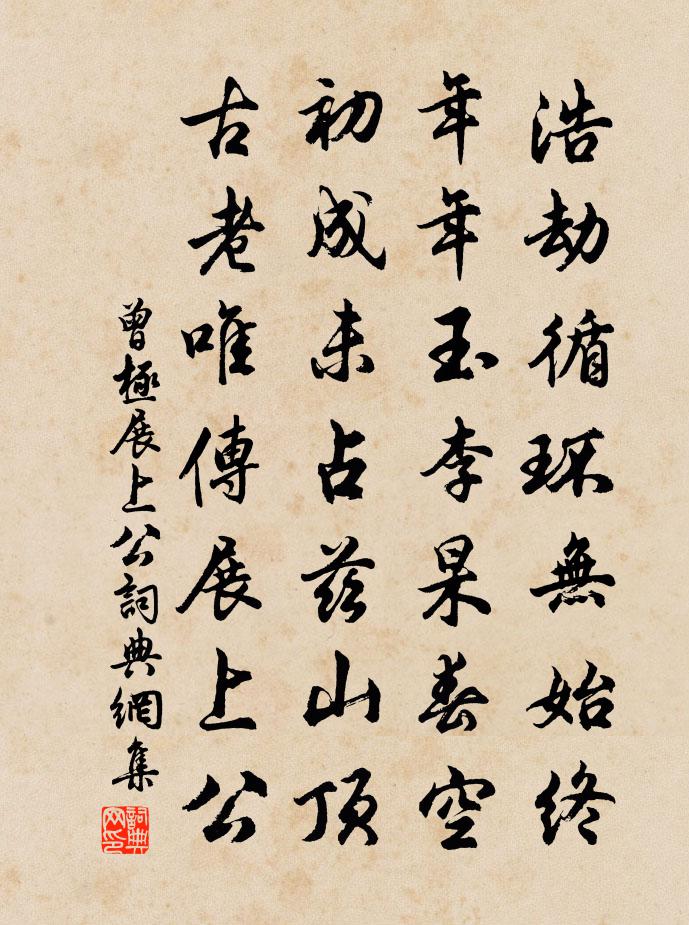 浩劫循环無始終
年年玉李杲春空
初成未占茲山頂
古老唯傳展上公
曾極展上公詞典網集
詞典网印